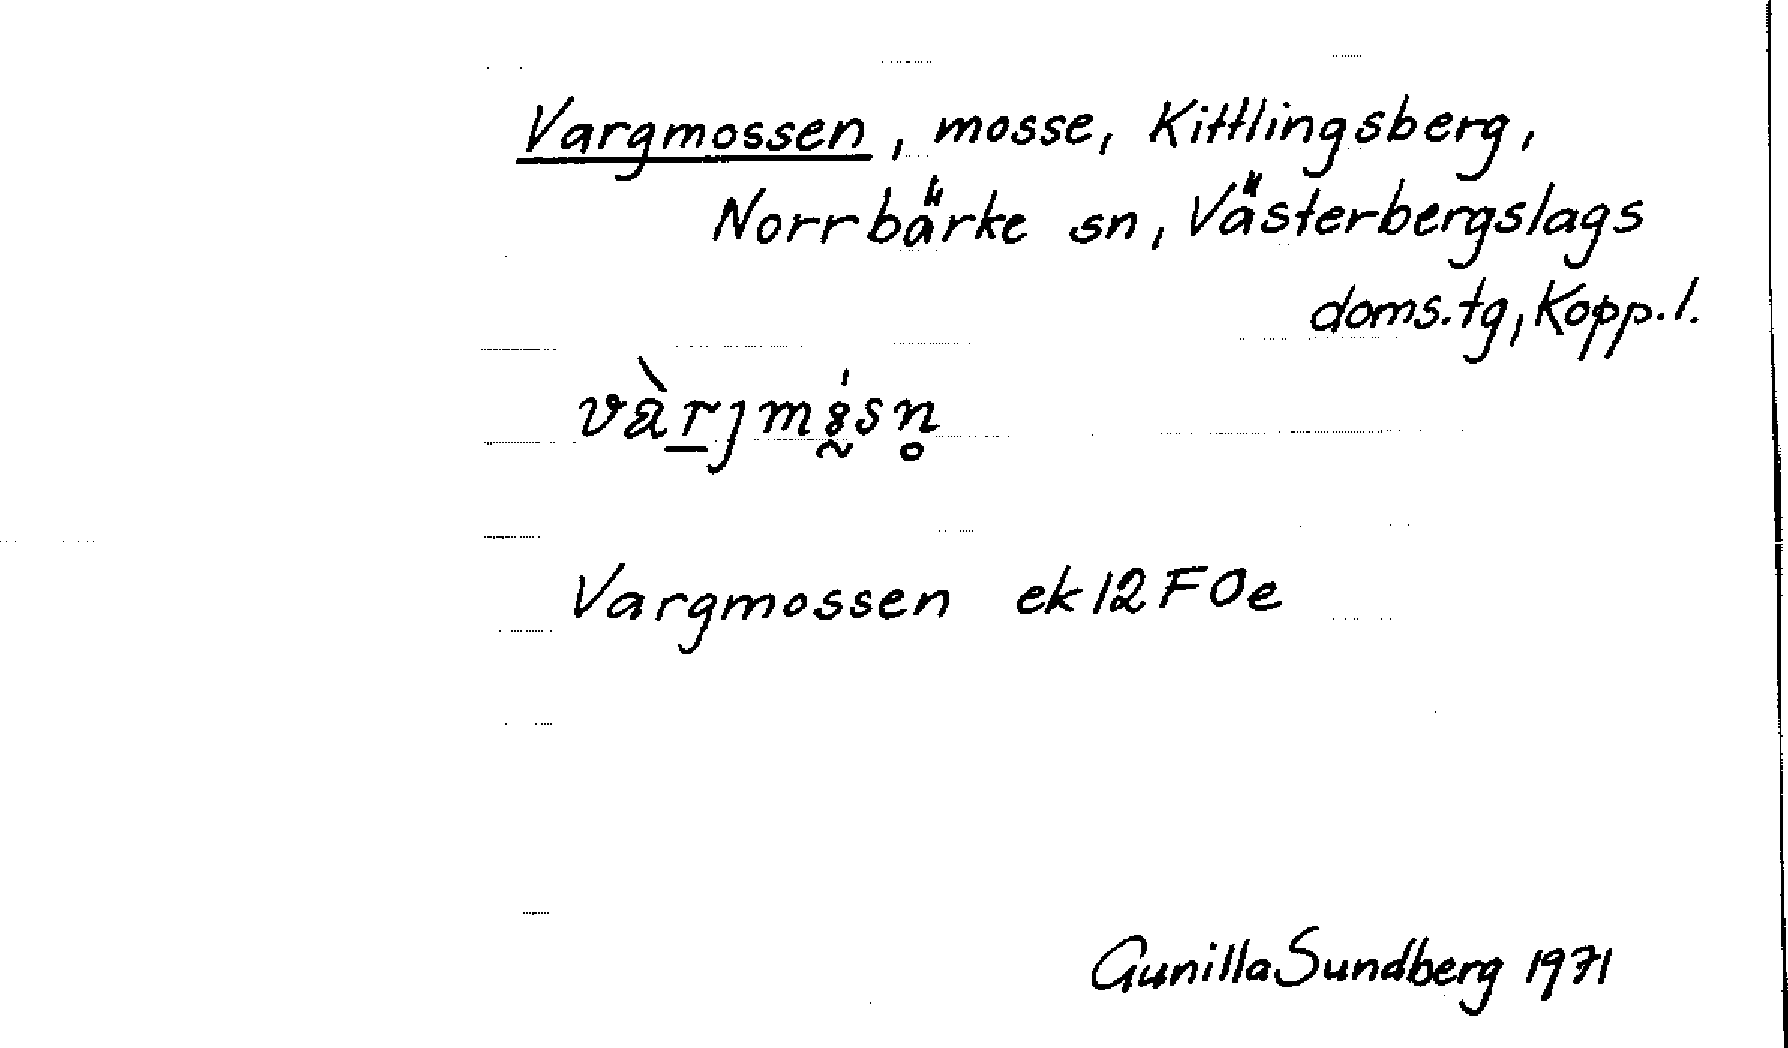 Vargmossen, mosse, Kittlingsberg,
Norrbärke sn, Västerbergslags
doms.tg, Kopp.l.
Vargmossen ek 12 F 0e
Gunilla Sundberg 1971